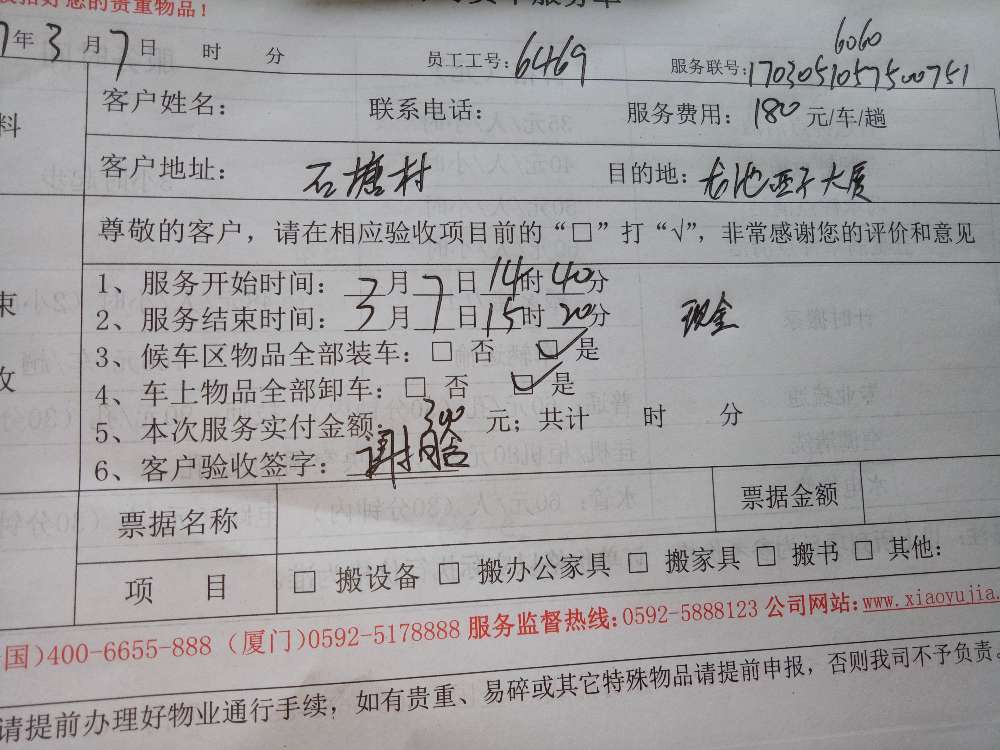 您的贵重物品！
7年3月7日 时 分 员工工号：6469 服务联号：1703051057500751
6060
客户姓名： 联系电话： 服务费用：180元/车/趟
料
客户地址：石塘村 目的地：龙池亚子大厦
尊敬的客户，请在相应验收项目前的“□”打“√”，非常感谢您的评价和意见
1、服务开始时间：3月7日14时40分
2、服务结束时间：3月7日15时20分 现金
束
3、候车区物品全部装车：□ 否 ☑ 是
收
4、车上物品全部卸车：□ 否 ☑ 是
5、本次服务实付金额：300元；共计 时 分
6、客户验收签字：
票据名称 票据金额
项 目 □ 搬设备 □ 搬办公家具 □ 搬家具 □ 搬书 □ 其他：
国)400-6655-888（厦门)0592-5178888 服务监督热线:0592-5888123 公司网站:www.xiaoyujia.
请提前办理好物业通行手续，如有贵重、易碎或其它特殊物品请提前申报，否则我司不予负责。